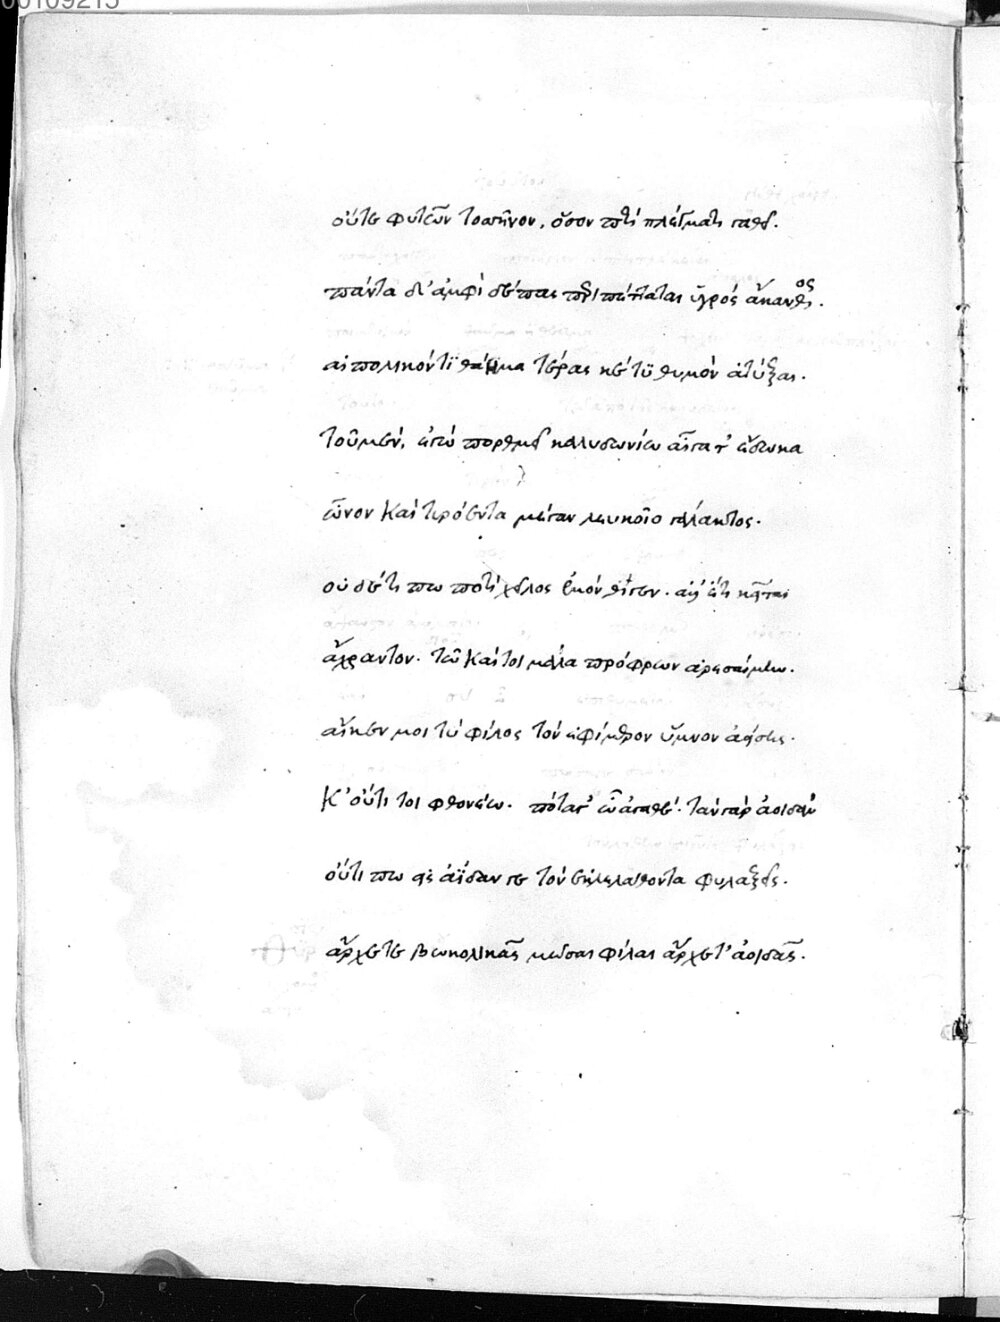 00109215
οὔτε φυτῶν τοσῆνον, ὅσον ποτὶ πλέγματι γαθεῖ.
παντᾶ δ' ἀμφὶ δέπας περιπέπταται ὑγρός ἄκανθος.
αἰπολικόν τι θάημα τέρας κέ τϋ θυμὸν ἀτύξαι.
τοῦ μὲν, ἐγὼ πορθμεῖ καλυδωνίω αἶγά τ' ἔδωκα
ὦνον καὶ τυρόεντα μέγαν λευκοῖο γάλακτος.
οὐδέ τι πω ποτὶ χεῖλος ἐμὸν θίγεν. ἀλλ' ἔτι κεῖται
ἄχραντον. τῶ καί τοι μάλα πρόφρων ἀρεσαίμαν.
αἴκεν μοι τὺ φίλος τὸν ἐφίμερον ὕμνον ἀείσῃς.
κ' οὔτι τοι φθονέω. πόταγ' ὦ 'γαθέ. τὰν γὰρ ἀοιδὰν
οὔτι πω εἰς ἀΐδαν γε τὸν ἐκλελάθοντα φυλαξεῖς.
ἄρχετε βωκολικᾶς μῶσαι φίλαι ἄρχετ' ἀοιδᾶς.